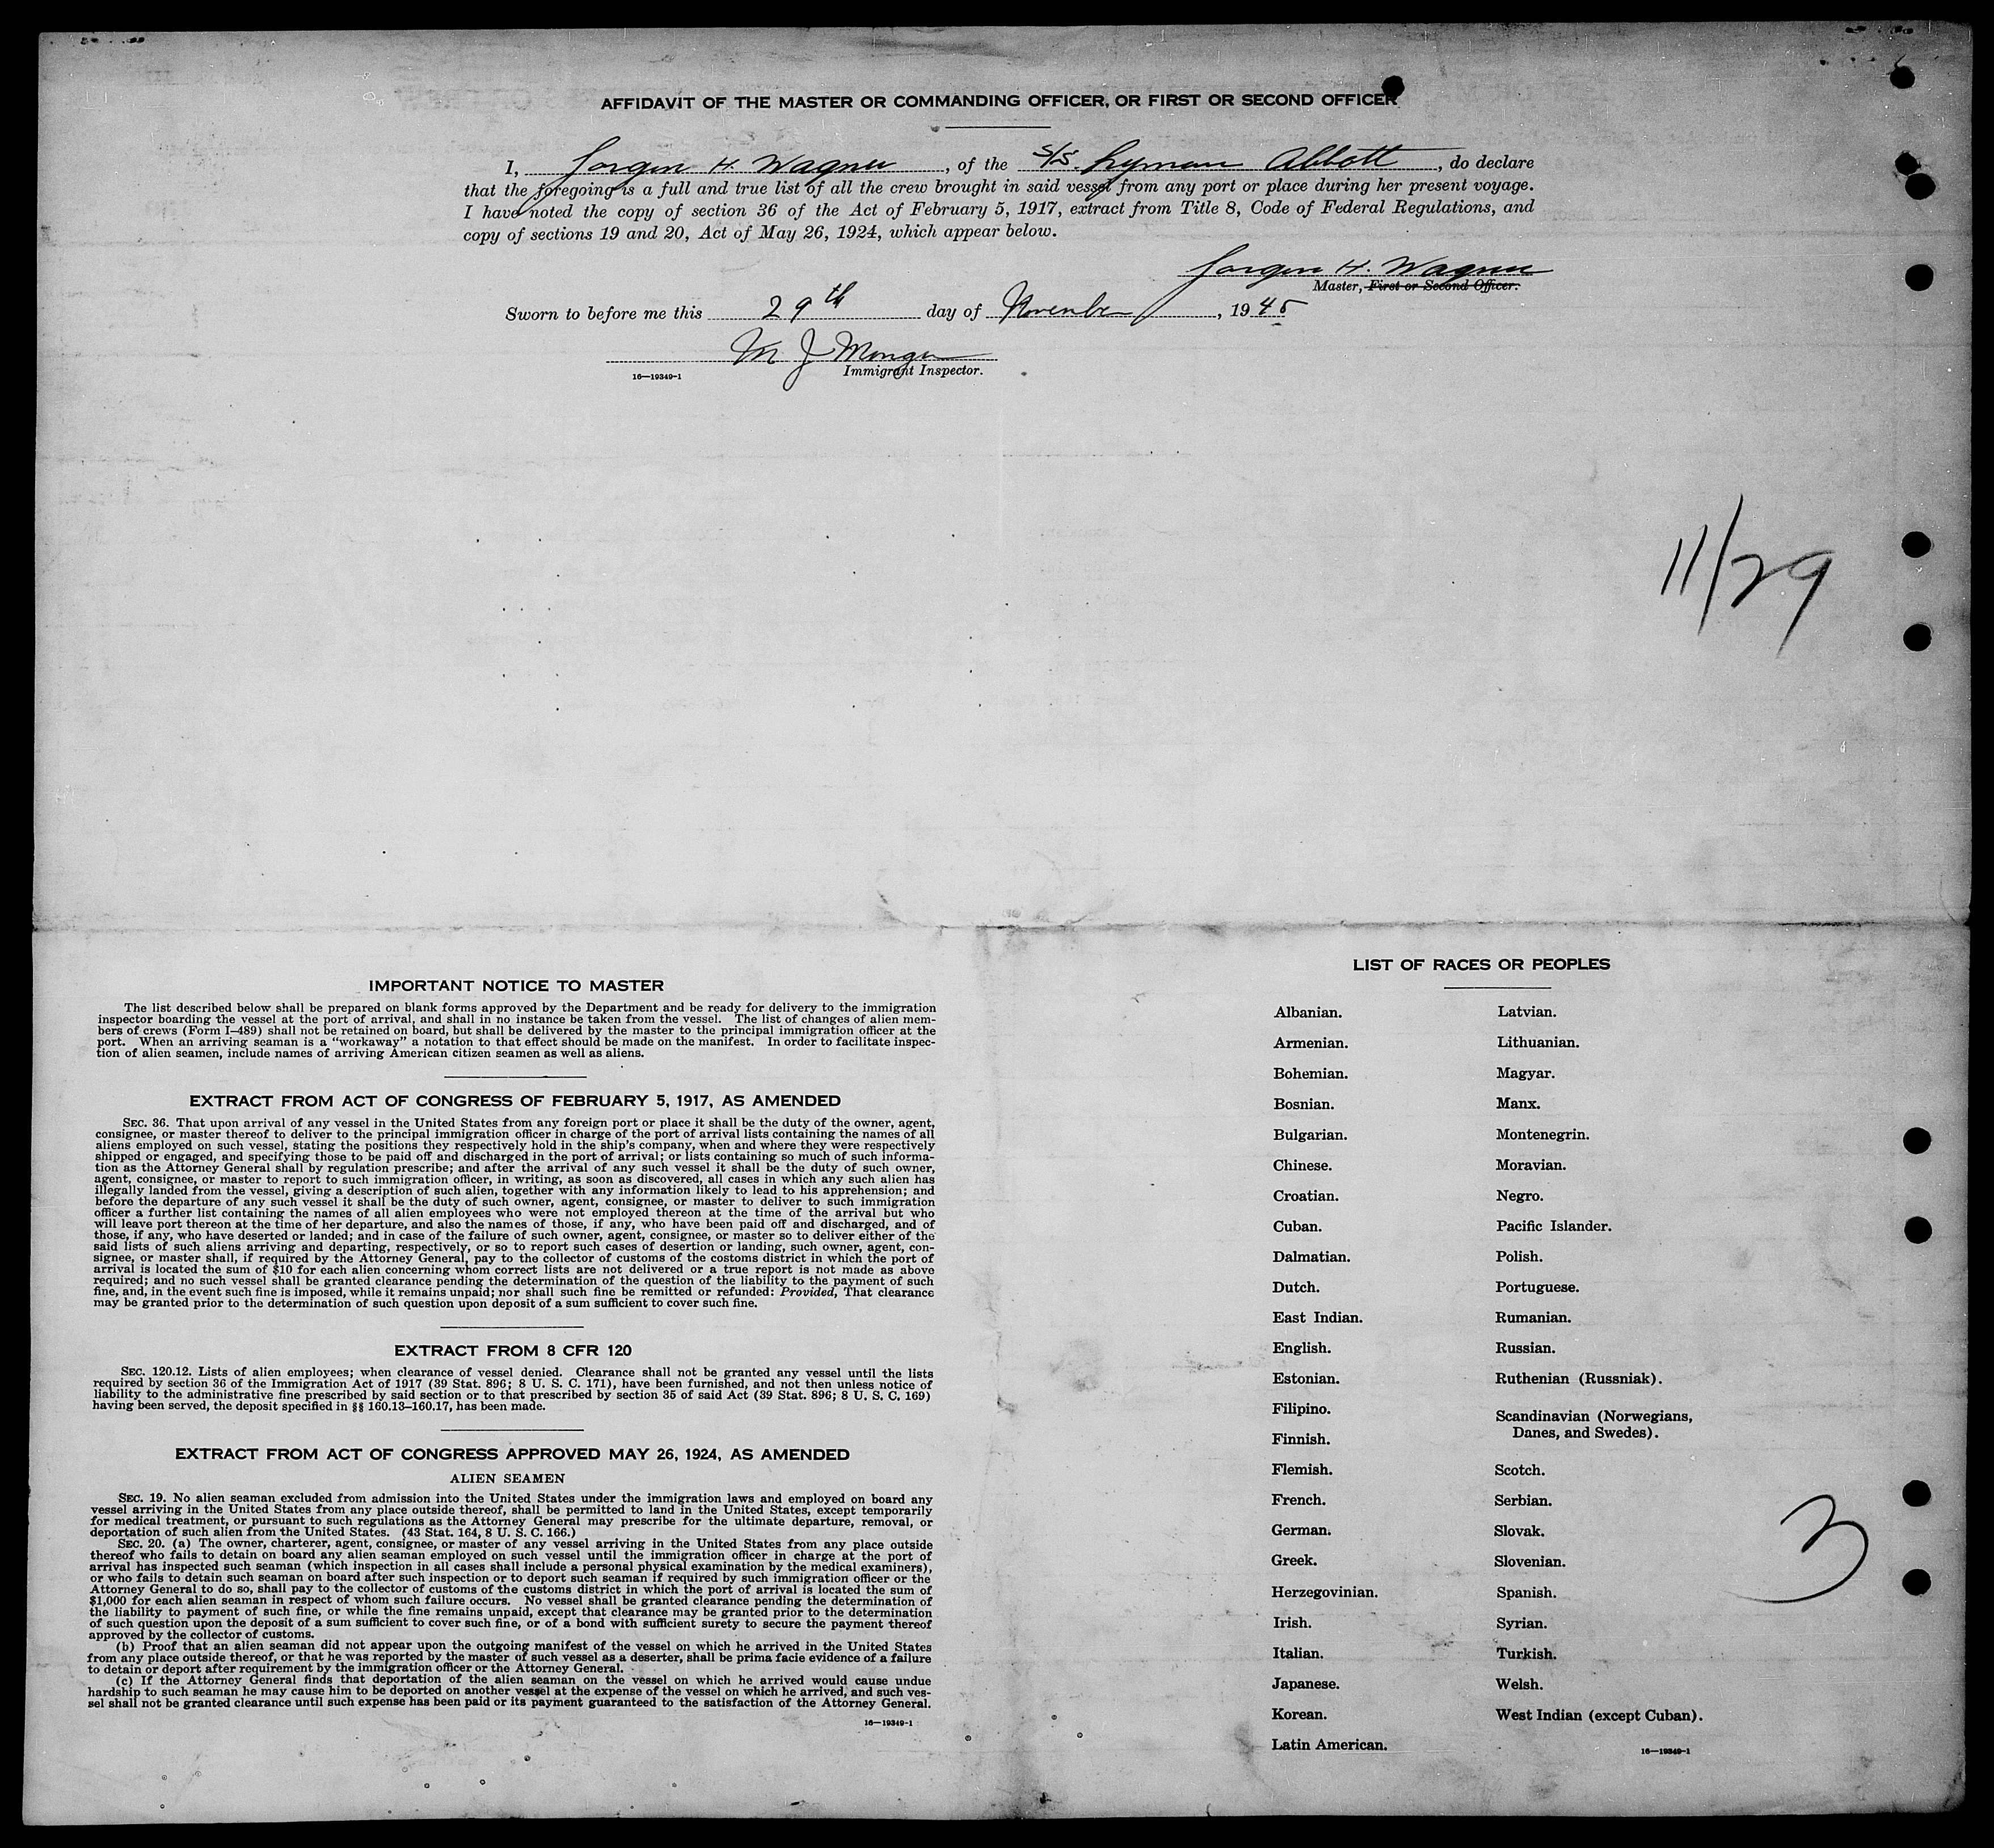 AFFIDAVIT OF THE MASTER OR COMMANDING OFFICER, OR FIRST OR SECOND OFFICER
I, Jorgen H. Wagner, of the S/S. Lyman Abbott, do declare
that the foregoing is a full and true list of all the crew brought in said vessel from any port or place during her present voyage.
I have noted the copy of section 36 of the Act of February 5, 1917, extract from Title 8, Code of Federal Regulations, and
copy of sections 19 and 20, Act of May 26, 1924, which appear below.
Jorgen H. Wagner
Master, First or Second Officer.
Sworn to before me this 29th day of November, 1945
M J
Immigrant Inspector.
16—19349-1
11/29
IMPORTANT NOTICE TO MASTER
The list described below shall be prepared on blank forms approved by the Department and be ready for delivery to the immigration
inspector boarding the vessel at the port of arrival, and shall in no instance be taken from the vessel. The list of changes of alien mem-
bers of crews (Form I-489) shall not be retained on board, but shall be delivered by the master to the principal immigration officer at the
port. When an arriving seaman is a "workaway" a notation to that effect should be made on the manifest. In order to facilitate inspec-
tion of alien seamen, include names of arriving American citizen seamen as well as aliens.
EXTRACT FROM ACT OF CONGRESS OF FEBRUARY 5, 1917, AS AMENDED
SEC. 36. That upon arrival of any vessel in the United States from any foreign port or place it shall be the duty of the owner, agent,
consignee, or master thereof to deliver to the principal immigration officer in charge of the port of arrival lists containing the names of all
aliens employed on such vessel, stating the positions they respectively hold in the ship's company, when and where they were respectively
shipped or engaged, and specifying those to be paid off and discharged in the port of arrival; or lists containing so much of such informa-
tion as the Attorney General shall by regulation prescribe; and after the arrival of any such vessel it shall be the duty of such owner,
agent, consignee, or master to report to such immigration officer, in writing, as soon as discovered, all cases in which any such alien has
illegally landed from the vessel, giving a description of such alien, together with any information likely to lead to his apprehension; and
before the departure of any such vessel it shall be the duty of such owner, agent, consignee, or master to deliver to such immigration
officer a further list containing the names of all alien employees who were not employed thereon at the time of the arrival but who
will leave port thereon at the time of her departure, and also the names of those, if any, who have been paid off and discharged, and of
those, if any, who have deserted or landed; and in case of the failure of such owner, agent, consignee, or master so to deliver either of the
said lists of such aliens arriving and departing, respectively, or so to report such cases of desertion or landing, such owner, agent, con-
signee, or master shall, if required by the Attorney General, pay to the collector of customs of the costoms district in which the port of
arrival is located the sum of $10 for each alien concerning whom correct lists are not delivered or a true report is not made as above
required; and no such vessel shall be granted clearance pending the determination of the question of the liability to the payment of such
fine, and, in the event such fine is imposed, while it remains unpaid; nor shall such fine be remitted or refunded: Provided, That clearance
may be granted prior to the determination of such question upon deposit of a sum sufficient to cover such fine.
EXTRACT FROM 8 CFR 120
SEC. 120.12. Lists of alien employees; when clearance of vessel denied. Clearance shall not be granted any vessel until the lists
required by section 36 of the Immigration Act of 1917 (39 Stat. 896; 8 U. S. C. 171), have been furnished, and not then unless notice of
liability to the administrative fine prescribed by said section or to that prescribed by section 35 of said Act (39 Stat. 896; 8 U. S. C. 169)
having been served, the deposit specified in §§ 160.13-160.17, has been made.
EXTRACT FROM ACT OF CONGRESS APPROVED MAY 26, 1924, AS AMENDED
ALIEN SEAMEN
SEC. 19. No alien seaman excluded from admission into the United States under the immigration laws and employed on board any
vessel arriving in the United States from any place outside thereof, shall be permitted to land in the United States, except temporarily
for medical treatment, or pursuant to such regulations as the Attorney General may prescribe for the ultimate departure, removal, or
deportation of such alien from the United States. (43 Stat. 164, 8 U. S. C. 166.)
SEC. 20. (a) The owner, charterer, agent, consignee, or master of any vessel arriving in the United States from any place outside
thereof who fails to detain on board any alien seaman employed on such vessel until the immigration officer in charge at the port of
arrival has inspected such seaman (which inspection in all cases shall include a personal physical examination by the medical examiners),
or who fails to detain such seaman on board after such inspection or to deport such seaman if required by such immigration officer or the
Attorney General to do so, shall pay to the collector of customs of the customs district in which the port of arrival is located the sum of
$1,000 for each alien seaman in respect of whom such failure occurs. No vessel shall be granted clearance pending the determination of
the liability to payment of such fine, or while the fine remains unpaid, except that clearance may be granted prior to the determination
of such question upon the deposit of a sum sufficient to cover such fine, or of a bond with sufficient surety to secure the payment thereof
approved by the collector of customs.
(b) Proof that an alien seaman did not appear upon the outgoing manifest of the vessel on which he arrived in the United States
from any place outside thereof, or that he was reported by the master of such vessel as a deserter, shall be prima facie evidence of a failure
to detain or deport after requirement by the immigration officer or the Attorney General.
(c) If the Attorney General finds that deportation of the alien seaman on the vessel on which he arrived would cause undue
hardship to such seaman he may cause him to be deported on another vessel at the expense of the vessel on which he arrived, and such ves-
sel shall not be granted clearance until such expense has been paid or its payment guaranteed to the satisfaction of the Attorney General.
16—19349-1
LIST OF RACES OR PEOPLES
Albanian.
Armenian.
Bohemian.
Bosnian.
Bulgarian.
Chinese.
Croatian.
Cuban.
Dalmatian.
Dutch.
East Indian.
English.
Estonian.
Filipino.
Finnish.
Flemish.
French.
German.
Greek.
Herzegovinian.
Irish.
Italian.
Japanese.
Korean.
Latin American.
Latvian.
Lithuanian.
Magyar.
Manx.
Montenegrin.
Moravian.
Negro.
Pacific Islander.
Polish.
Portuguese.
Rumanian.
Russian.
Ruthenian (Russniak).
Scandinavian (Norwegians,
Danes, and Swedes).
Scotch.
Serbian.
Slovak.
Slovenian.
Spanish.
Syrian.
Turkish.
Welsh.
West Indian (except Cuban).
16—19349-1
3